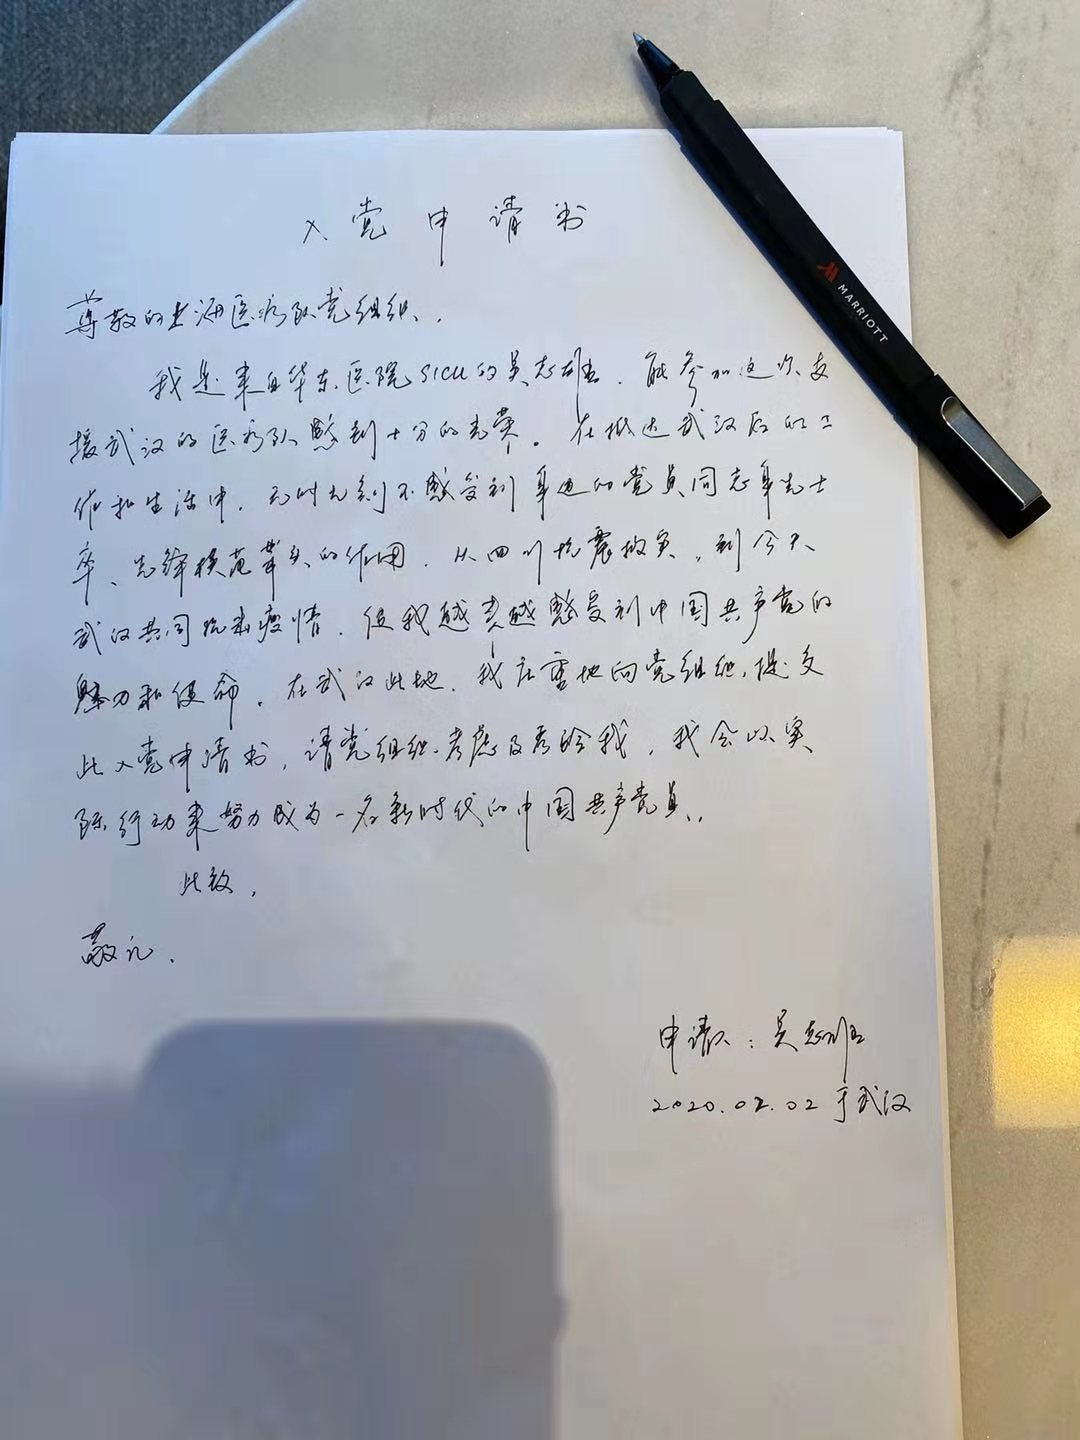 入党申请书
尊敬的上海医疗队党组织、
我是来自华东医院SICU的吴志雄、能参加这次支
援武汉的医疗队感到十分的光荣。在抵达武汉后的工
作和生活中，无时无刻不感受到身边的党员同志身先士
卒、先锋模范带头的作用、从四川抗震救灾，到今天
武汉共同抗击疫情、使我越来越感受到中国共产党的
魅力和使命。在武汉此地、我庄重地向党组织提交
此入党申请书，请党组织考虑及考验我，我会以实
际行动来努力成为一名新时代的中国共产党员、
此致，
敬礼、
申请人：吴志雄
2020.02.02于武汉
MARRIOTT